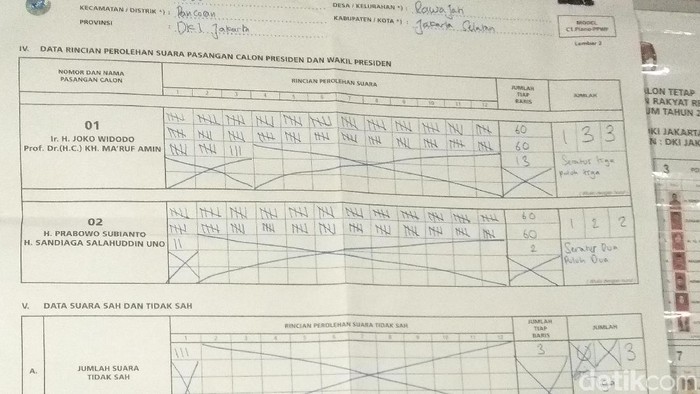 KECAMATAN / DISTRIK *) : Pancoran
DESA / KELURAHAN *) : Rawajati
PROVINSI : DKI Jakarta
KABUPATEN / KOTA *) : Jakarta Selatan
MODEL
C1.Plano-PPWP
Lembar 2
IV. DATA RINCIAN PEROLEHAN SUARA PASANGAN CALON PRESIDEN DAN WAKIL PRESIDEN
NOMOR DAN NAMA
PASANGAN CALON
RINCIAN PEROLEHAN SUARA
JUMLAH
TIAP
BARIS
JUMLAH
1 2 3 4 5 6 7 8 9 10 11 12
01
Ir. H. JOKO WIDODO
Prof. Dr.(H.C.) KH. MA'RUF AMIN
60
60
13
1 3 3
Seratus tiga
puluh tiga
02
H. PRABOWO SUBIANTO
H. SANDIAGA SALAHUDDIN UNO
60
60
2
1 2 2
Seratus Dua
Puluh Dua
V. DATA SUARA SAH DAN TIDAK SAH
RINCIAN PEROLEHAN SUARA TIDAK SAH
JUMLAH
TIAP
BARIS
JUMLAH
A.
JUMLAH SUARA
TIDAK SAH
III
3
3
LON TETAP
RAKYAT RE
UM TAHUN 2
DKI JAKARTA
: DKI JAK
3
7
detikcom